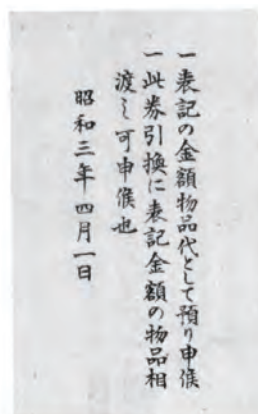 一表記の金額物品代として預り申候
一此券引換に表記金額の物品相
渡し可申候也
昭和三年四月一日